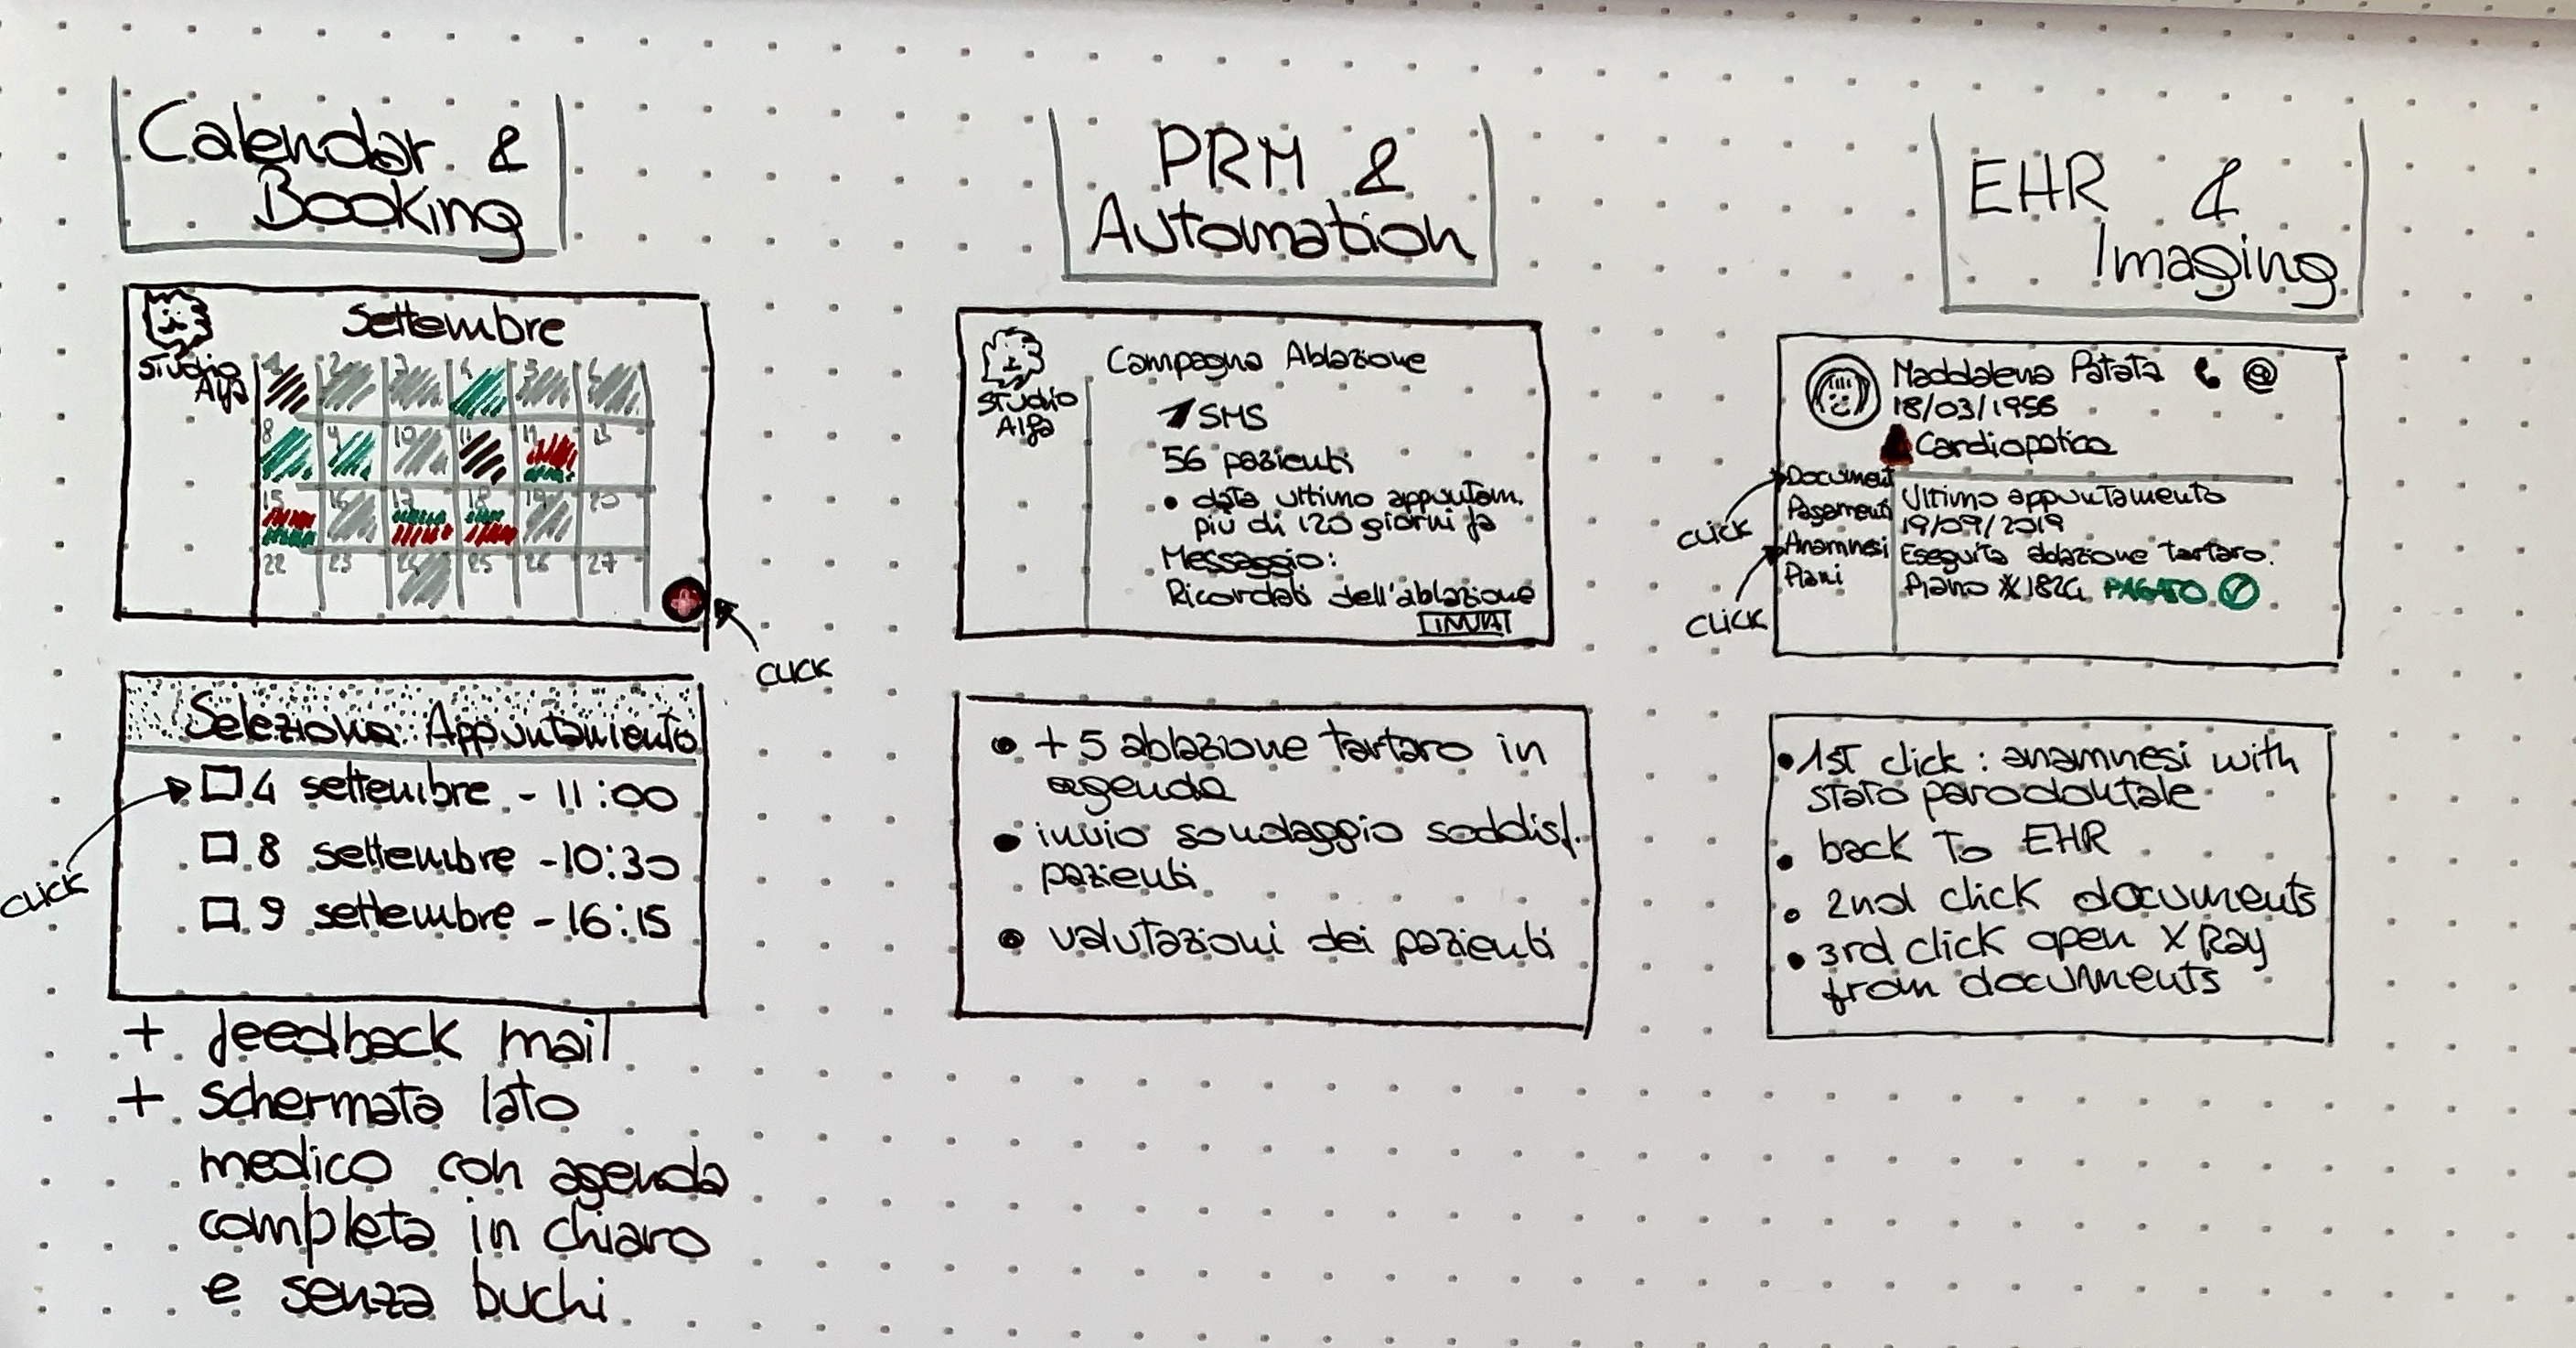 Calendar &
Booking
Settembre
Studio
Alfa
1 2 3 4 5 6
8 9 10 11 12 13
15 16 17 18 19 20
22 23 24 25 26 27
CLICK
Seleziona Appuntamento
4 settembre - 11:00
8 settembre - 10:30
9 settembre - 16:15
CLICK
+ feedback mail
+ schermata lato
medico con agenda
completa in chiaro
e senza buchi
PRM &
Automation
Studio
Alfa
Campagna Ablazione
SMS
56 pazienti
• data ultimo appuntam.
più di 120 giorni fa
Messaggio:
Ricordati dell'ablazione
INVIA
• +5 ablazione tartaro in
agenda
• invio sondaggio soddisf.
pazienti
• valutazioni dei pazienti
EHR &
Imaging
Maddalena Patata @
18/03/1956
Cardiopatica
Document
Pagamenti
Anamnesi
Piani
CLICK
CLICK
Ultimo appuntamento
19/09/2019
Eseguita ablazione tartaro.
Piano #1824 PAGATO
• 1st click: anamnesi with
stato parodontale
• back to EHR
• 2nd click documents
• 3rd click open X Ray
from documents